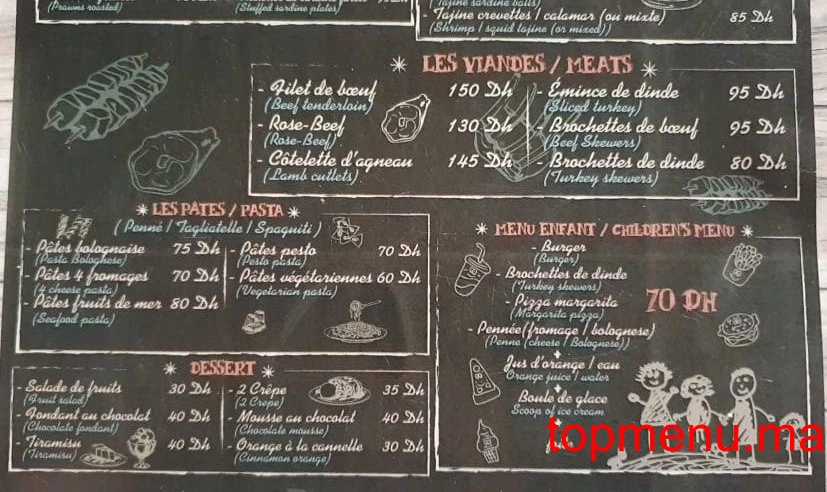 (Prawns roasted)
(Stuffed sardine plates)
(Tajine sardine balls)
- Tajine crevettes / calamar (ou mixte) 85 Dh
(Shrimp / squid tajine (or mixed))
LES VIANDES / MEATS
- Filet de bœuf 150 Dh
(Beef tenderloin)
- Rose-Beef 130 Dh
(Rose-Beef)
- Côtelette d'agneau 145 Dh
(Lamb cutlets)
- Émince de dinde 95 Dh
(Sliced turkey)
- Brochettes de bœuf 95 Dh
(Beef Skewers)
- Brochettes de dinde 80 Dh
(Turkey skewers)
LES PÂTES / PASTA
(Penné / Tagliatelle / Spaguiti)
- Pâtes bolognaise 75 Dh
(Pasta Bolognese)
- Pâtes 4 fromages 70 Dh
(4 cheese pasta)
- Pâtes fruits de mer 80 Dh
(Seafood pasta)
- Pâtes pesto 70 Dh
(Pesto pasta)
- Pâtes végétariennes 60 Dh
(Vegetarian pasta)
MENU ENFANT / CHILDREN'S MENU
- Burger
(Burger)
- Brochettes de dinde
(Turkey skewers)
- Pizza margarita
(Margarita pizza)
- Pennée(fromage / bolognese)
(Penne (cheese / Bolognese))
+
Jus d'orange / eau
Orange juice / water
+
Boule de glace
Scoop of ice cream
70 DH
DESSERT
- Salade de fruits 30 Dh
(Fruit salad)
- Fondant au chocolat 40 Dh
(Chocolate fondant)
- Tiramisu 40 Dh
(Tiramisu)
- 2 Crêpe 35 Dh
(2 Crepe)
- Mousse au chocolat 40 Dh
(Chocolate mousse)
- Orange à la cannelle 30 Dh
(Cinnamon orange)
topmenu.ma